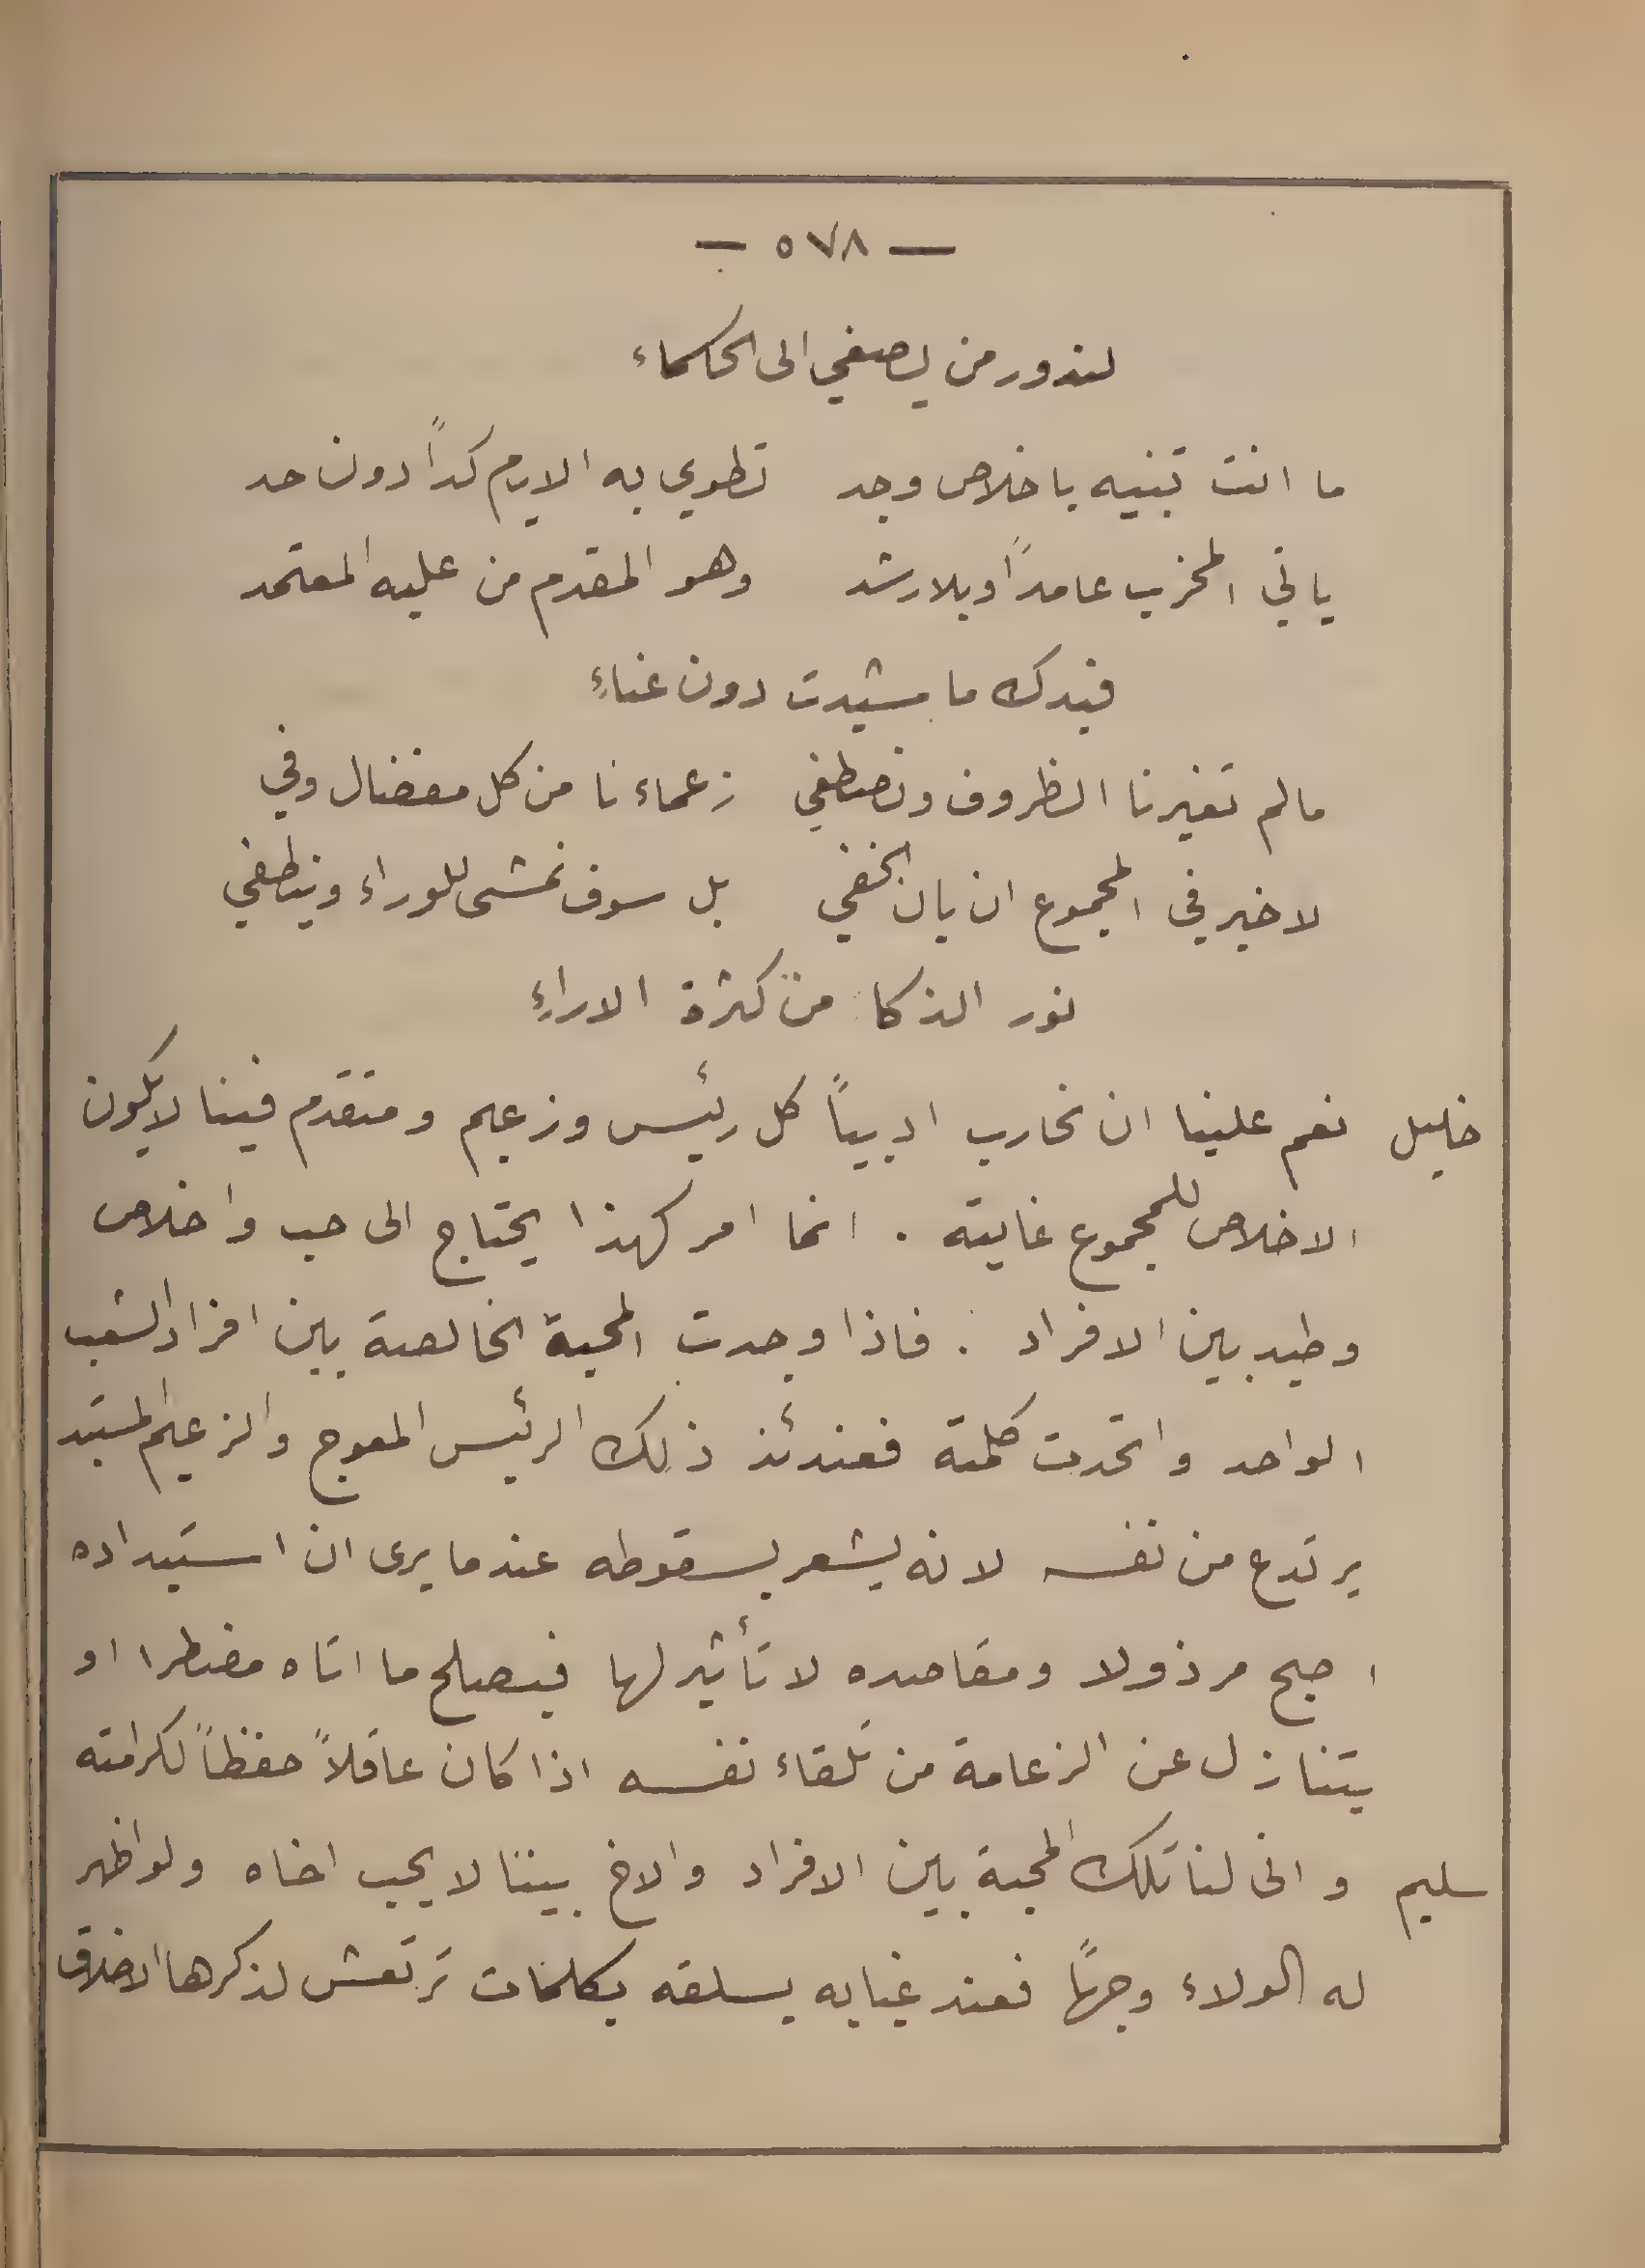 — ٥٧٨ —
لندور من يصغي الى الحكماء
ما انت تبنيه باخلاص وجد تطوي به الايام كداً دون حد
ياتي المخرب عامداً وبلا رشد وهو المقدم من عليه المعتمد
فيدك ما شيدت دون عناءِ
مالم تغيرنا الظروف ونصطفي زعماءنا من كل مفضال وفي
لا خير في المجموع ان بان الخفي بل سوف نمشى للوراء وينطفي
نور الذكا من كثرة الاراءِ
خليل نعم علينا ان نحارب ادبياً كل رئيس وزعيم ومتقدم فينا لا يكون
الاخلاص للمجموع غايته . انما امر كهذا يحتاج الى حب واخلاص
وطيد بين الافراد . فاذا وجدت المحبة الخالصة بين افراد الشعب
الواحد واتحدت كلمته فعندئذ ذلك الرئيس المعوج والزعيم المستبد
يرتدع من نفسه لانه يشعر بسقوطه عندما يرى ان استبداده
اصبح مرذولا ومقاصده لا تأثير لها فيصلح ما اتاه مضطرا او
يتنازل عن الزعامة من تلقاء نفسه اذا كان عاقلاً حفظاً لكرامته
سليم وانى لنا تلك المحبة بين الافراد والاخ بيننا لا يحب اخاه ولو اظهر
له الولاء وجهاً فعند غيابه يسلقه بكلمات ترتعش لذكرها الاخلاق